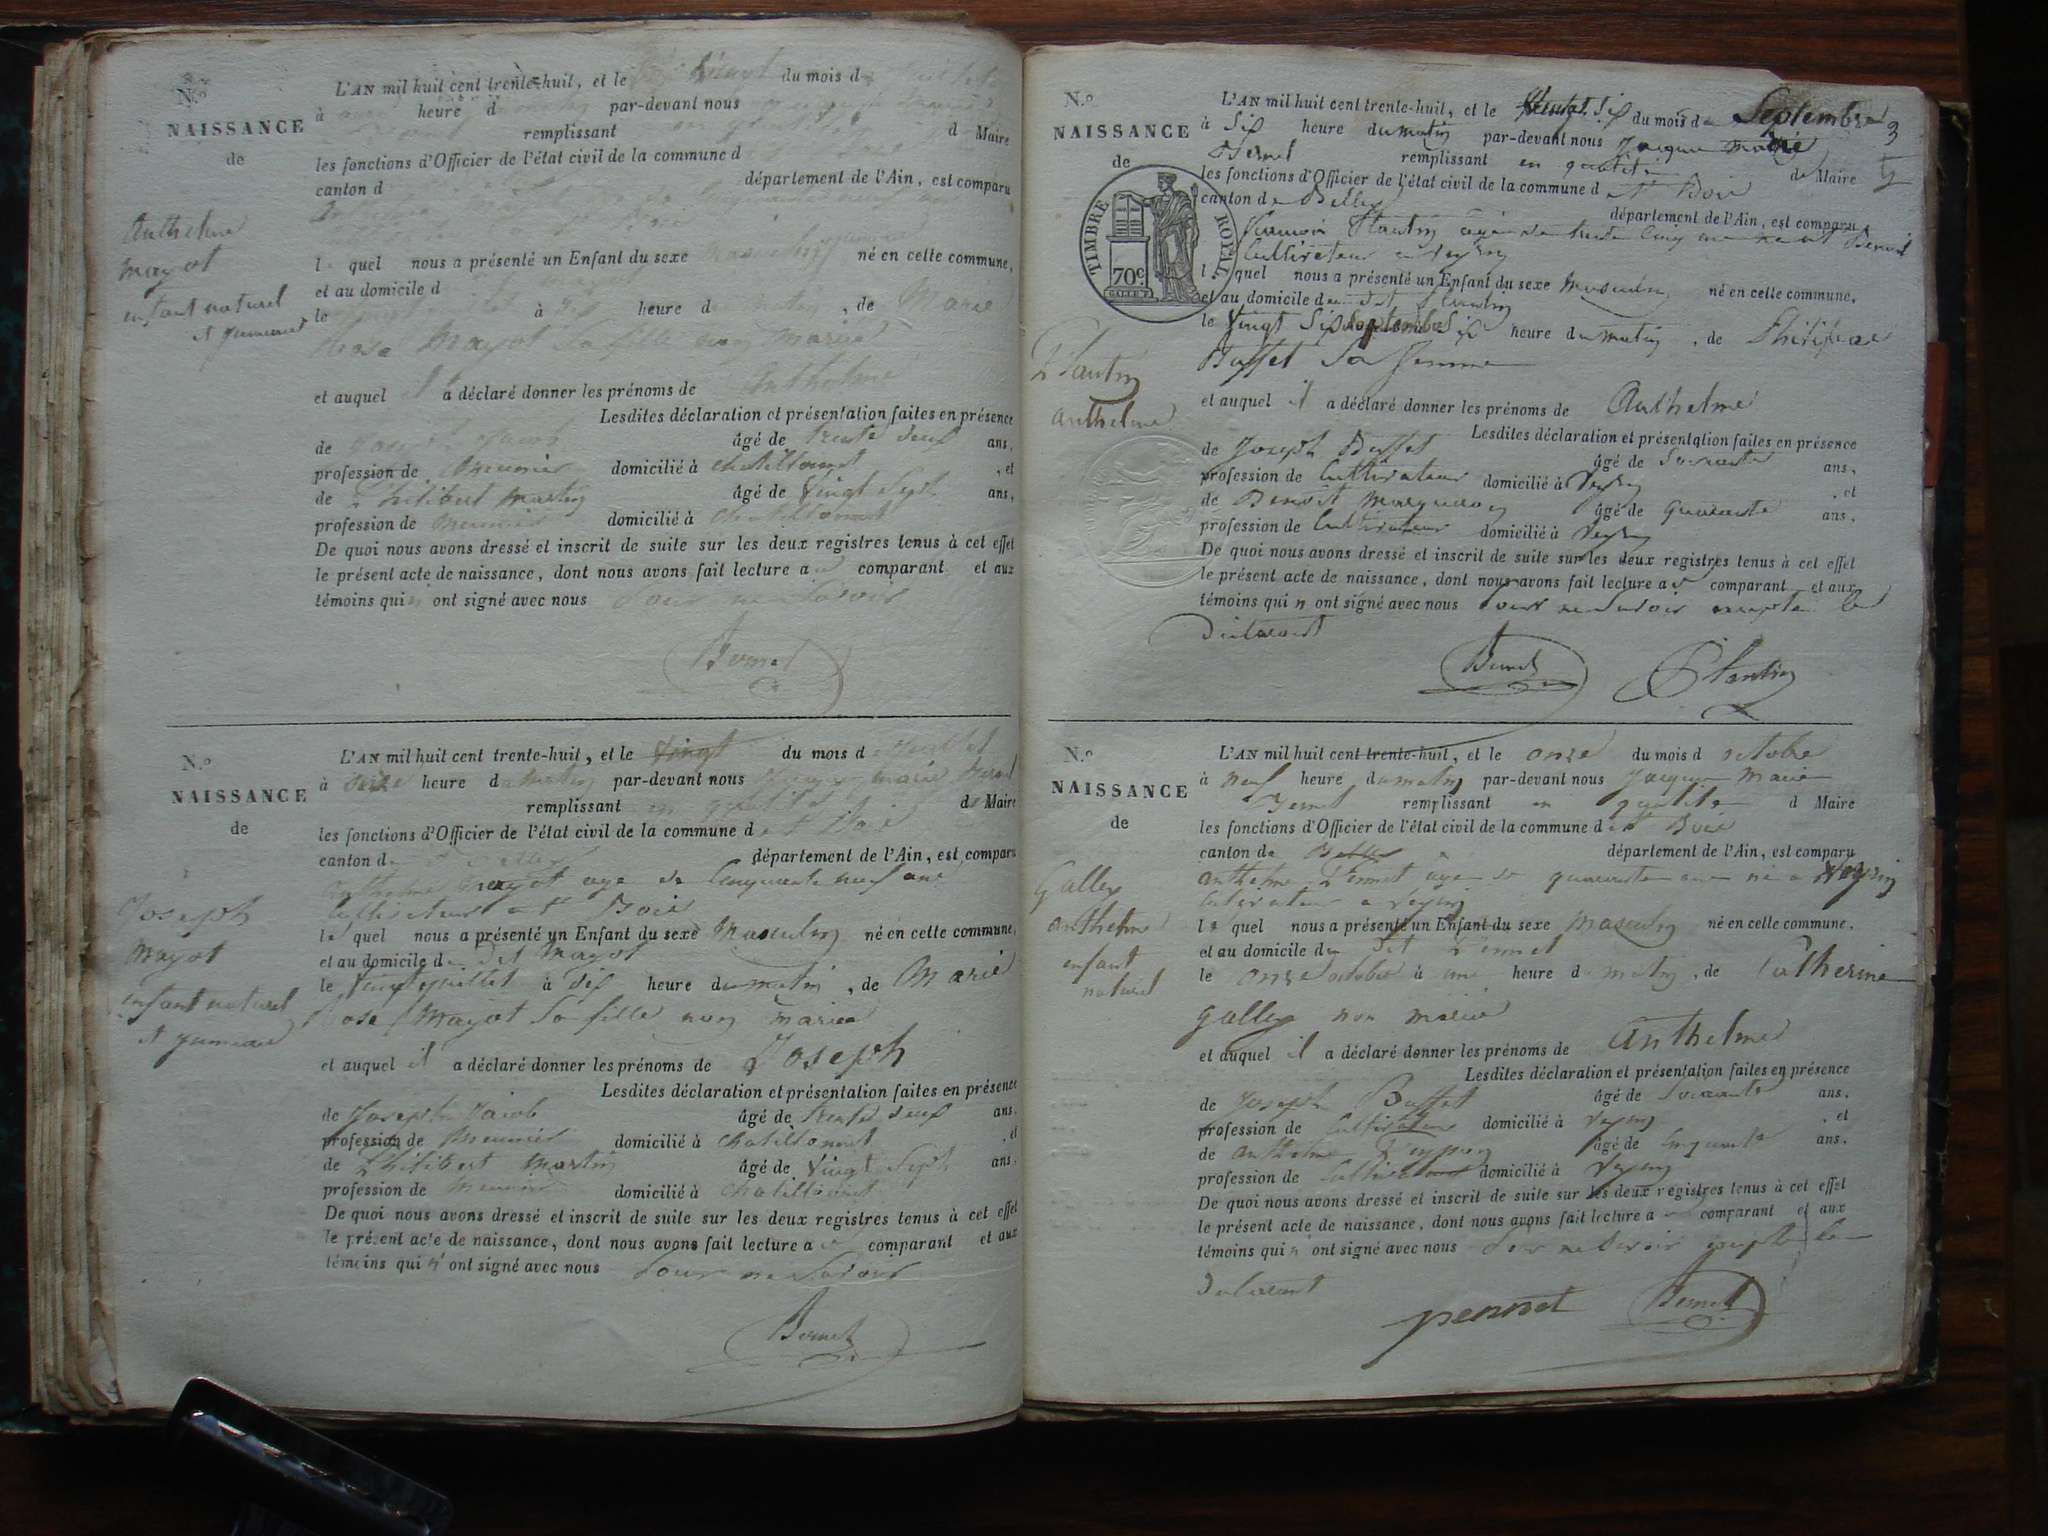 N.º
NAISSANCE
de
Anthelme
mayot
enfant naturel
et jumeau
L'AN mil huit cent trente-huit, et le vingt du mois d
à heure d par-devant nous
remplissant d Maire
les fonctions d'Officier de l'état civil de la commune d
canton d département de l'Ain, est comparu
l quel nous a présenté un Enfant du sexe masculin né en cette commune,
et au domicile d
le à dix heure du matin, de Marie
Rose Mayot sa fille non mariée
et auquel il a déclaré donner les prénoms de Anthelme
Lesdites déclaration et présentation faites en présence
de Joseph Jacob âgé de trente deux ans,
profession de meunier domicilié à Chatillonnet, et
de Philibert Martin âgé de vingt sept ans,
profession de meunier domicilié à Chatillonnet
De quoi nous avons dressé et inscrit de suite sur les deux registres tenus à cet effet
le présent acte de naissance, dont nous avons fait lecture a comparant et aux
témoins qui n' ont signé avec nous pour ne savoir
Bernet
N.º
NAISSANCE
de
Joseph
mayot
enfant naturel
et jumeau
L'AN mil huit cent trente-huit, et le vingt du mois de juillet
à onze heure du matin par-devant nous Jacque marie Bernet
remplissant en qualité de Maire
les fonctions d'Officier de l'état civil de la commune de St Boie
canton de Belley département de l'Ain, est comparu
Anthelme mayot age de Cinquante neuf ans
Cultivateur a St Boie
le quel nous a présenté un Enfant du sexe Masculin né en cette commune,
et au domicile du dit Mayot
le vingt juillet à dix heure du matin, de Marie
Rose Mayot sa fille non mariée
et auquel il a déclaré donner les prénoms de Joseph
Lesdites déclaration et présentation faites en présence
de Joseph Jacob âgé de trente deux ans,
profession de Meunier domicilié à Chatillonnet, et
de Philibert Martin âgé de vingt sept ans,
profession de Meunier domicilié à Chatillonnet
De quoi nous avons dressé et inscrit de suite sur les deux registres tenus à cet effet
le présent acte de naissance, dont nous avons fait lecture a comparant et aux
témoins qui n' ont signé avec nous pour ne savoir
Bernet
N.º
NAISSANCE
de
TIMBRE ROYAL
70c
Plantin
anthelme
L'AN mil huit cent trente-huit, et le vingt six du mois de Septembre
à six heure du matin par-devant nous Jacque Marie
Bernet remplissant en qualité de Maire
les fonctions d'Officier de l'état civil de la commune de St Boie
canton de Belley département de l'Ain, est comparu
Plantin agé de trente cinq ans
Cultivateur a Veyrin
l quel nous a présenté un Enfant du sexe masculin né en cette commune,
et au domicile du dit Plantin
le vingt six Septembre six heure du matin, de
Buffet sa femme
et auquel il a déclaré donner les prénoms de Anthelme
Lesdites déclaration et présentation faites en présence
de Joseph Buffet âgé de soixante ans,
profession de Cultivateur domicilié à Veyrin, et
de Benoit âgé de quarante ans,
profession de Cultivateur domicilié à Veyrin
De quoi nous avons dressé et inscrit de suite sur les deux registres tenus à cet effet
le présent acte de naissance, dont nous avons fait lecture a comparant et aux
témoins qui n ont signé avec nous pour ne savoir excepte le
declarant
Bernet Plantin
N.º
NAISSANCE
de
Galley
anthelme
enfant
naturel
L'AN mil huit cent trente-huit, et le onze du mois d octobre
à neuf heure du matin par-devant nous Jacque Marie
Bernet remplissant en qualité d Maire
les fonctions d'Officier de l'état civil de la commune de St Boie
canton de Belley département de l'Ain, est comparu
anthelme Pennet age de quarante ans né a Veyrin
Cultivateur a Veyrin
le quel nous a présenté un Enfant du sexe masculin né en cette commune,
et au domicile du dit Pennet
le onze octobre à une heure du matin, de Catherine
Galley non mariée
et auquel il a déclaré donner les prénoms de Anthelme
Lesdites déclaration et présentation faites en présence
de Joseph Buffet âgé de soixante ans,
profession de Cultivateur domicilié à Veyrin, et
de anthelme âgé de cinquante ans,
profession de Cultivateur domicilié à Veyrin
De quoi nous avons dressé et inscrit de suite sur les deux registres tenus à cet effet
le présent acte de naissance, dont nous avons fait lecture a comparant et aux
témoins qui n' ont signé avec nous pour ne savoir excepte le
declarant
pennet Bernet